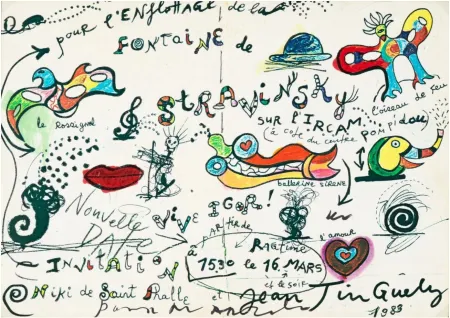 pour l'ENFLOTTAGE de la
FONTAINE de
STRAVINSKY
l'oiseau de feu
le Rossignol
SUR l'IRCAM
(à côté du centre POMPIDOU)
ballerine SIRENE
VIVE IGOR!
NOUVELLE
DATE
l'amour
PARTIR de
Ragtime
INVITATION
à 15,30 le 16 MARS
et le soir
Niki de Saint Phalle et Jean Tinguely
1983